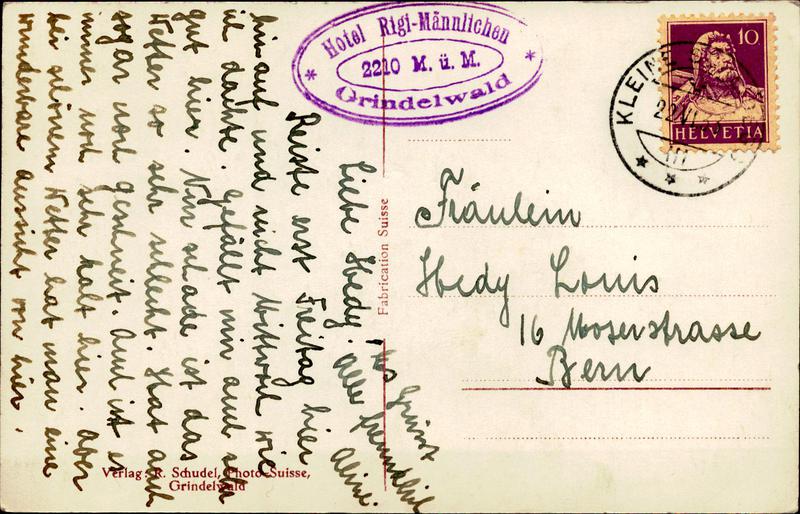 Hotel Rigi-Männlichen
2210 M. ü. M.
Grindelwald
10
HELVETIA
KLEINE
22.VI.
III
Fräulein
Hedy Louis
16 Moserstrasse
Bern
Fabrication Suisse
Liebe Hedy.
Reiste erst Freitag hier
hinauf und nicht Mittwoch wie
ich dachte. Gefällt mir auch sehr
gut hier. Nur schade ist das
Wetter so sehr schlecht. Hat auch
sogar noch geschneit. Auch ist es
immer noch sehr kalt hier. Aber
bei schönem Wetter hat man eine
wunderbare Aussicht von hier.
Es Grüsst
aller freundlich
Aline.
Verlag R. Schudel, Photo-Suisse,
Grindelwald